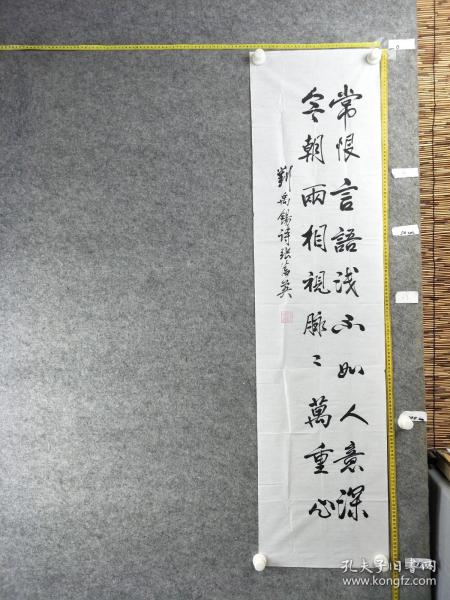 常恨言語浅不如人意深
今朝兩相視脉〻萬重心
劉禹錫诗张富英
0
孔夫子旧书网
www.kongfz.com